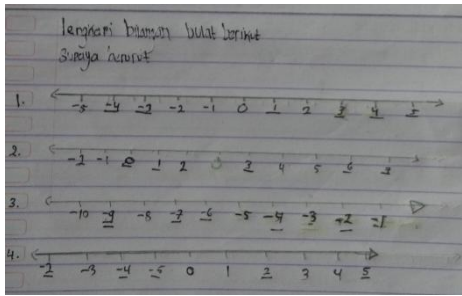 lengkapi bilangan bulat berikut
supaya berurut
1. -5 -4 -3 -2 -1 0 1 2 3 4 5
2. -2 -1 0 1 2 3 4 5 6
3. -10 -9 -8 -7 -6 -5 -4 -3 -2 -1
4. -2 -3 -4 -5 0 1 2 3 4 5